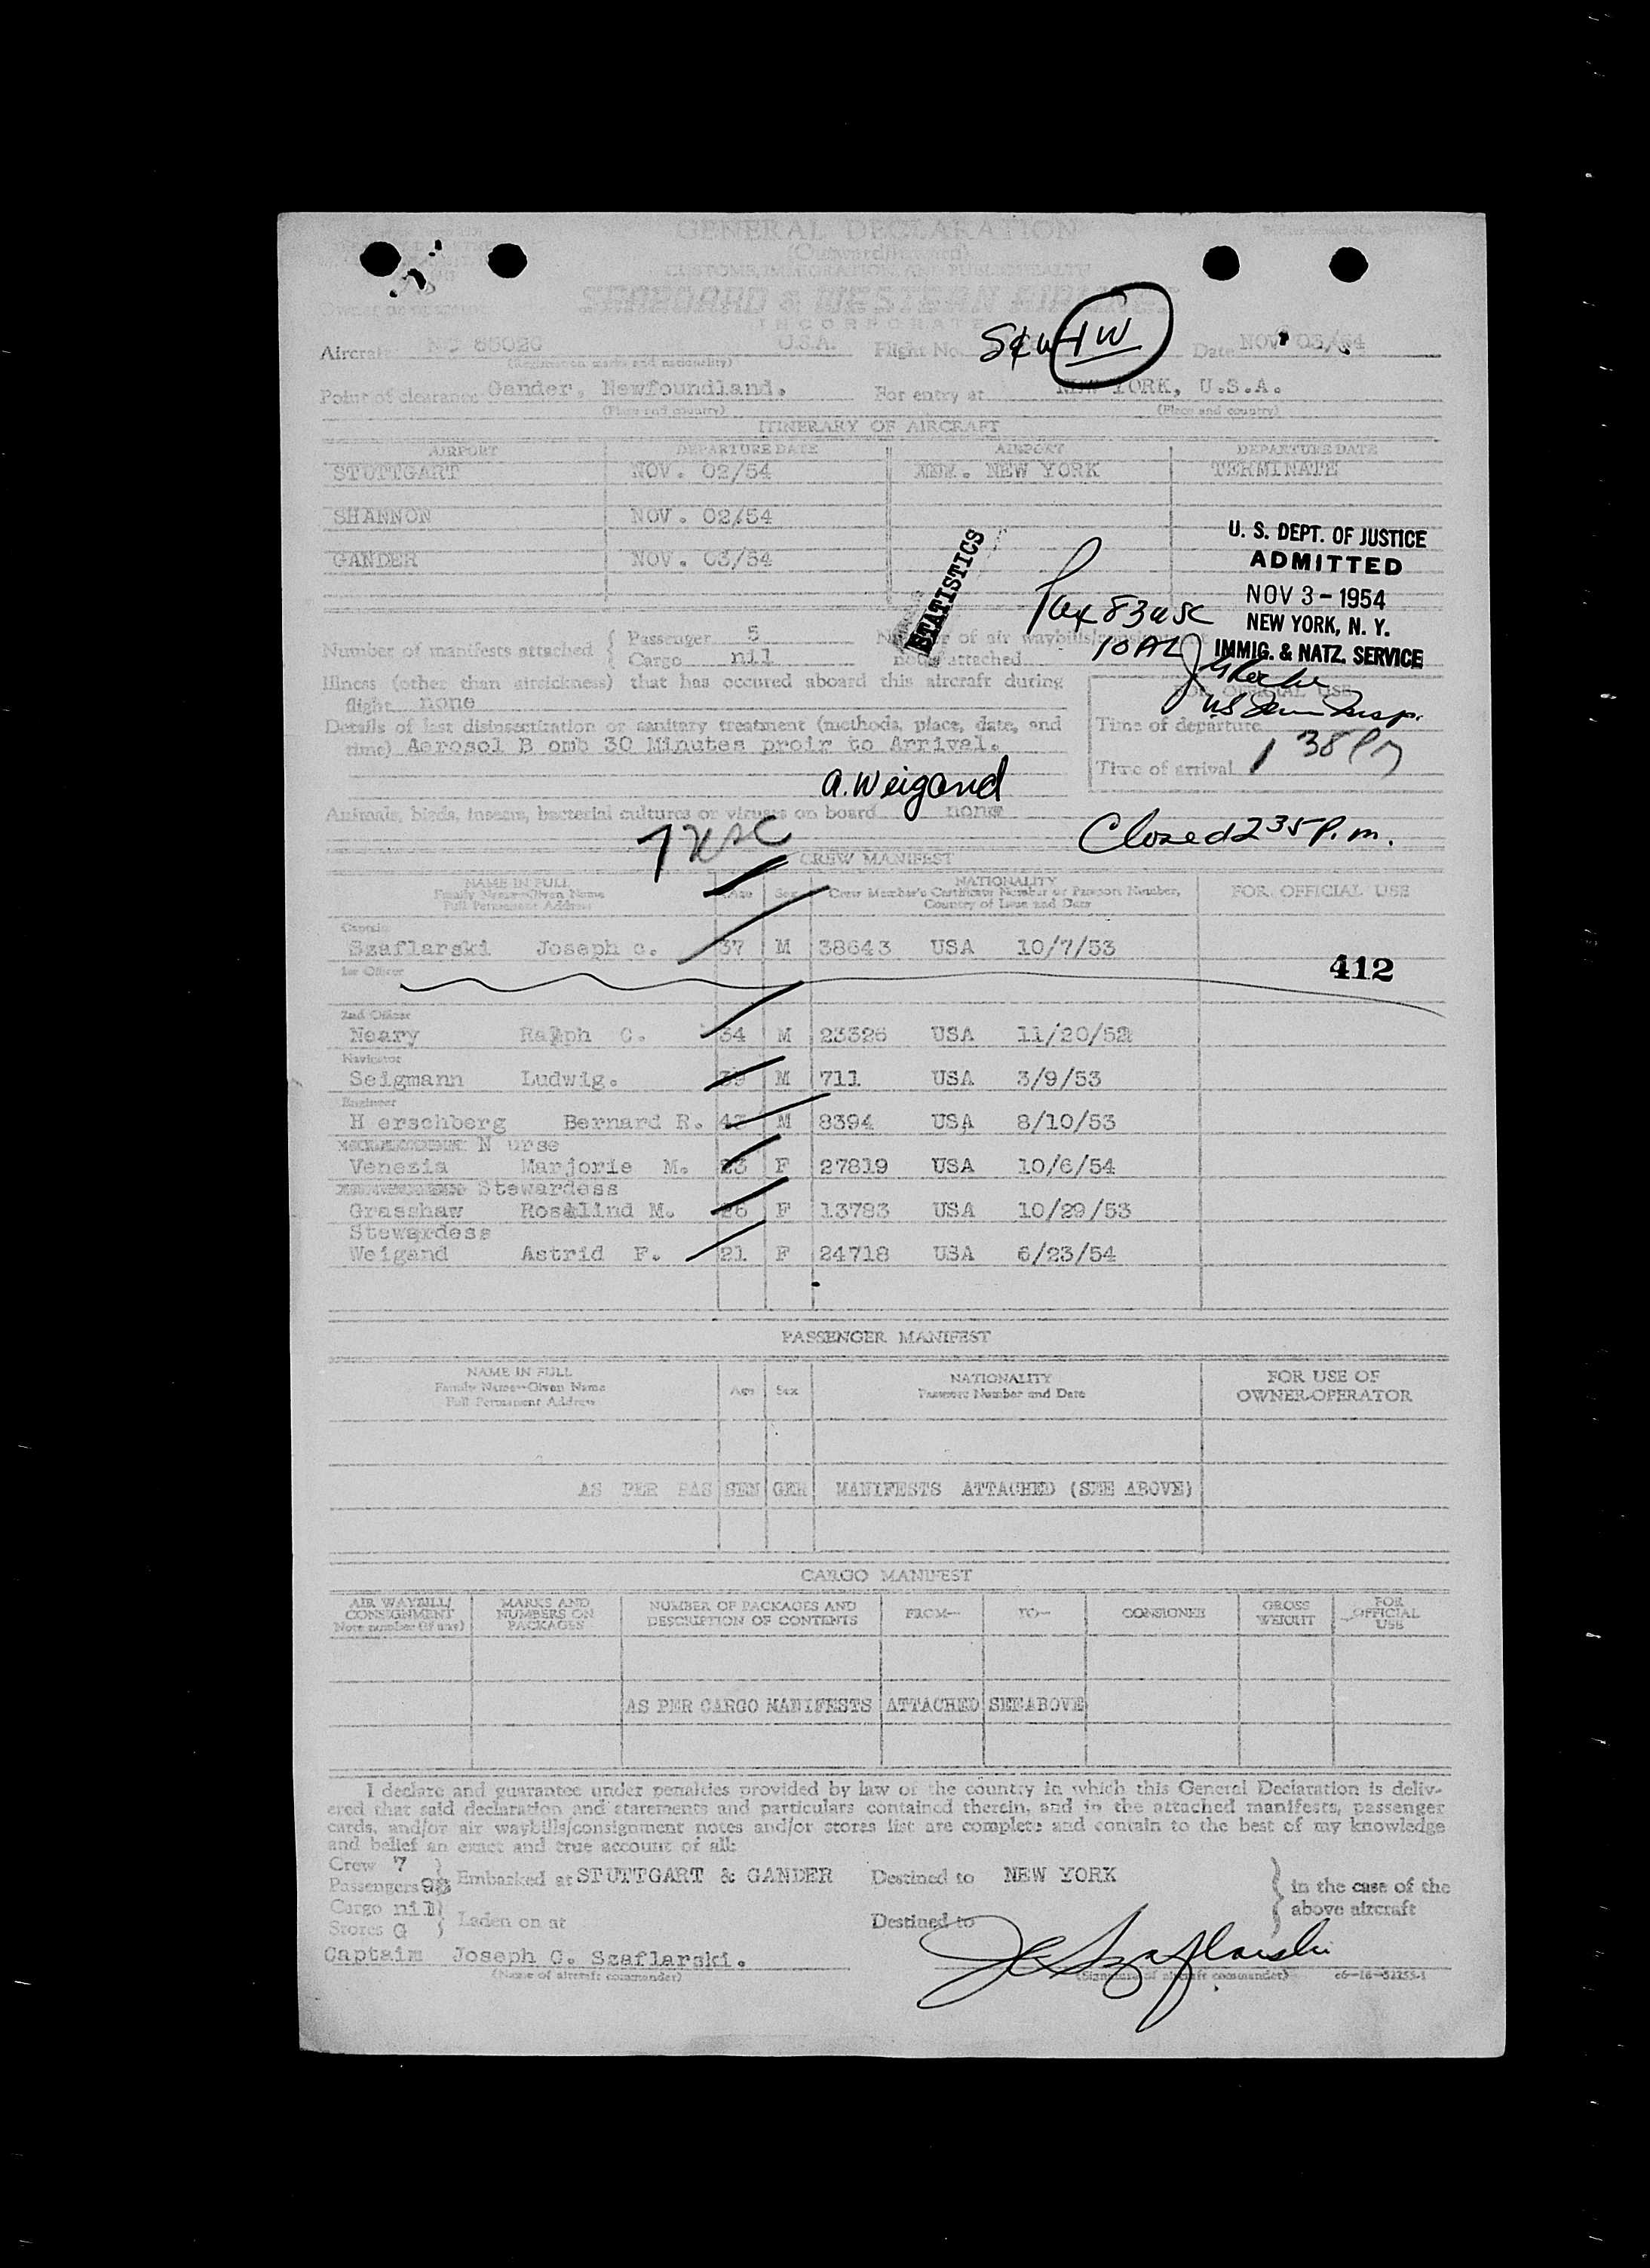 GENERAL DECLARATION
(Outward/Inward)
CUSTOMS, IMMIGRATION, AND PUBLIC HEALTH
SEABOARD & WESTERN AIRLINES
INCORPORATED
Aircraft NC 86026 U.S.A. Flight No. S&W 1W Date NOV 03/54
(Registration marks and nationality)
Point of clearance Gander, Newfoundland. For entry at NEW YORK, U.S.A.
(Place and country) (Place and country)
ITINERARY OF AIRCRAFT
AIRPORT DEPARTURE DATE AIRPORT DEPARTURE DATE
STUTTGART NOV. 02/54 NEW YORK TERMINATE
SHANNON NOV. 02/54
U. S. DEPT. OF JUSTICE
ADMITTED
GANDER NOV. 03/54
NOV 3 - 1954
NEW YORK, N. Y.
IMMIG. & NATZ. SERVICE
STATISTICS
Pax 83 usc
10 AL
Number of manifests attached { Passenger 5 Number of air waybills/consignment
Cargo nil notes attached
Illness (other than airsickness) that has occured aboard this aircraft during
flight none
FOR OFFICIAL USE
Details of last disinsectization or sanitary treatment (methods, place, date, and
time) Aerosol B omb 30 Minutes proir to Arrival.
Time of departure
Time of arrival 1 38 PM
A. Weigand
Animals, birds, insects, bacterial cultures or viruses on board none
Closed 2 35 P.m.
7 usc
CREW MANIFEST
NAME IN FULL Age Sex NATIONALITY FOR OFFICIAL USE
Family Name—Given Name Crew Member's Certificate Number or Passport Number,
Full Permanent Address Country of Issue and Date
Captain
Szaflarski Joseph c. 37 M 38643 USA 10/7/53
412
1st Officer
2nd Officer
Neary Ralph C. 34 M 23326 USA 11/20/52
Navigator
Seigmann Ludwig. 39 M 711 USA 3/9/53
Engineer
H erschberg Bernard R. 43 M 8394 USA 8/10/53
N urse
Venezia Marjorie M. 23 F 27819 USA 10/6/54
Stewardess
Grasshaw Rosalind M. 26 F 13783 USA 10/29/53
Stewardess
Weigand Astrid F. 21 F 24718 USA 6/23/54
PASSENGER MANIFEST
NAME IN FULL Age Sex NATIONALITY FOR USE OF
Family Name—Given Name Passport Number and Date OWNER-OPERATOR
Full Permanent Address
AS PER PAS SEN GER MANIFESTS ATTACHED (SEE ABOVE)
CARGO MANIFEST
AIR WAYBILL/ CONSIGNMENT Note number (if any) MARKS AND NUMBERS ON PACKAGES NUMBER OF PACKAGES AND DESCRIPTION OF CONTENTS FROM— TO— CONSIGNEE GROSS WEIGHT FOR OFFICIAL USE
AS PER CARGO MANIFESTS ATTACHED SEE ABOVE
I declare and guarantee under penalties provided by law of the country in which this General Declaration is deliv-
ered that said declaration and statements and particulars contained therein, and in the attached manifests, passenger
cards, and/or air waybills/consignment notes and/or stores list are complete and contain to the best of my knowledge
and belief an exact and true account of all:
Crew 7
Passengers 93 } Embarked at STUTTGART & GANDER Destined to NEW YORK } in the case of the
Cargo nil above aircraft
Stores G } Laden on at Destined to
Captain Joseph C. Szaflarski. JC Szaflarski
(Name of aircraft commander) (Signature of aircraft commander) c6—16—52255-1